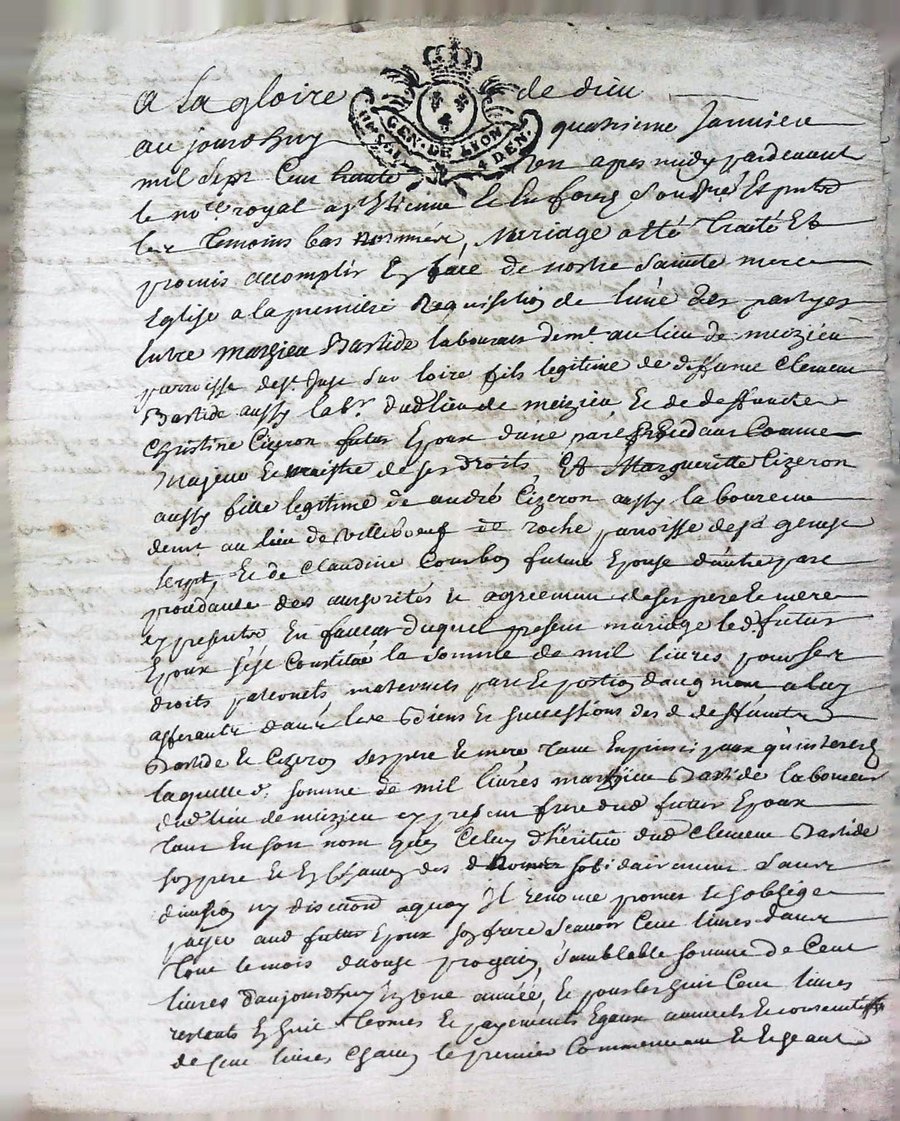 a la gloire de dieu
GEN. DE LYON
4 DEN.
aujourdhuy quatrieme Janviere
mil sept Cent trante apres midy pardevant
le no.re royal a st Etienne le
les temoins bas nommés, Mariage a été traité Et
promis accomplir En face de nostre Sainte mere
Eglise a la premiere Requisition de lune des partyes
Entre Mathieu Bastide laboureur demt. au lieu de meizieu
parroisse de st. Just sur loire fils legitime de deffunt Clement
Bastide aussy labr. dud lieu de meizieu Et de deffuncte
Christine Cizeron futur Epoux dune part Comme
Majeur Et maistre de ses droits, Et Margueritte Cizeron
aussy fille legitime de andré Cizeron aussy laboureur
demt au lieu de Villeboeuf roche parroisse de st genest
lerpt, Et de Claudine Courbon future Epouse dautre part
des authorités Et agreement de ses pere Et mere
Cy presents En faveur duquel present mariage led. futur
Epoux sest Constitué la somme de mil livres pour ses
droits paternels maternels part Et portion daugment a luy
afferants dans les Biens Et successions des d deffuncts
Bastide Et Cizeron ses pere Et mere tant En principaux quinterests
laquelle d. somme de mil livres Mathieu Bastide laboureur
dud lieu de meizieu cy present frere dud futur Epoux
tant En son nom que Celuy dheritier dud Clement Bastide
son pere Et des d noms solidairement sans
division ny discution a quoy Il renonce promet Et soblige
payer aud futur Epoux son frere Scavoir Cent livres dans
tout le mois daoust prochain, semblable somme de Cent
livres daujourdhuy En une année, Et pour les huit Cent livres
restants En huit termes Et payements Egaux annuels Et consecutifs
de Cent livres Chacun le premier Commencant Et